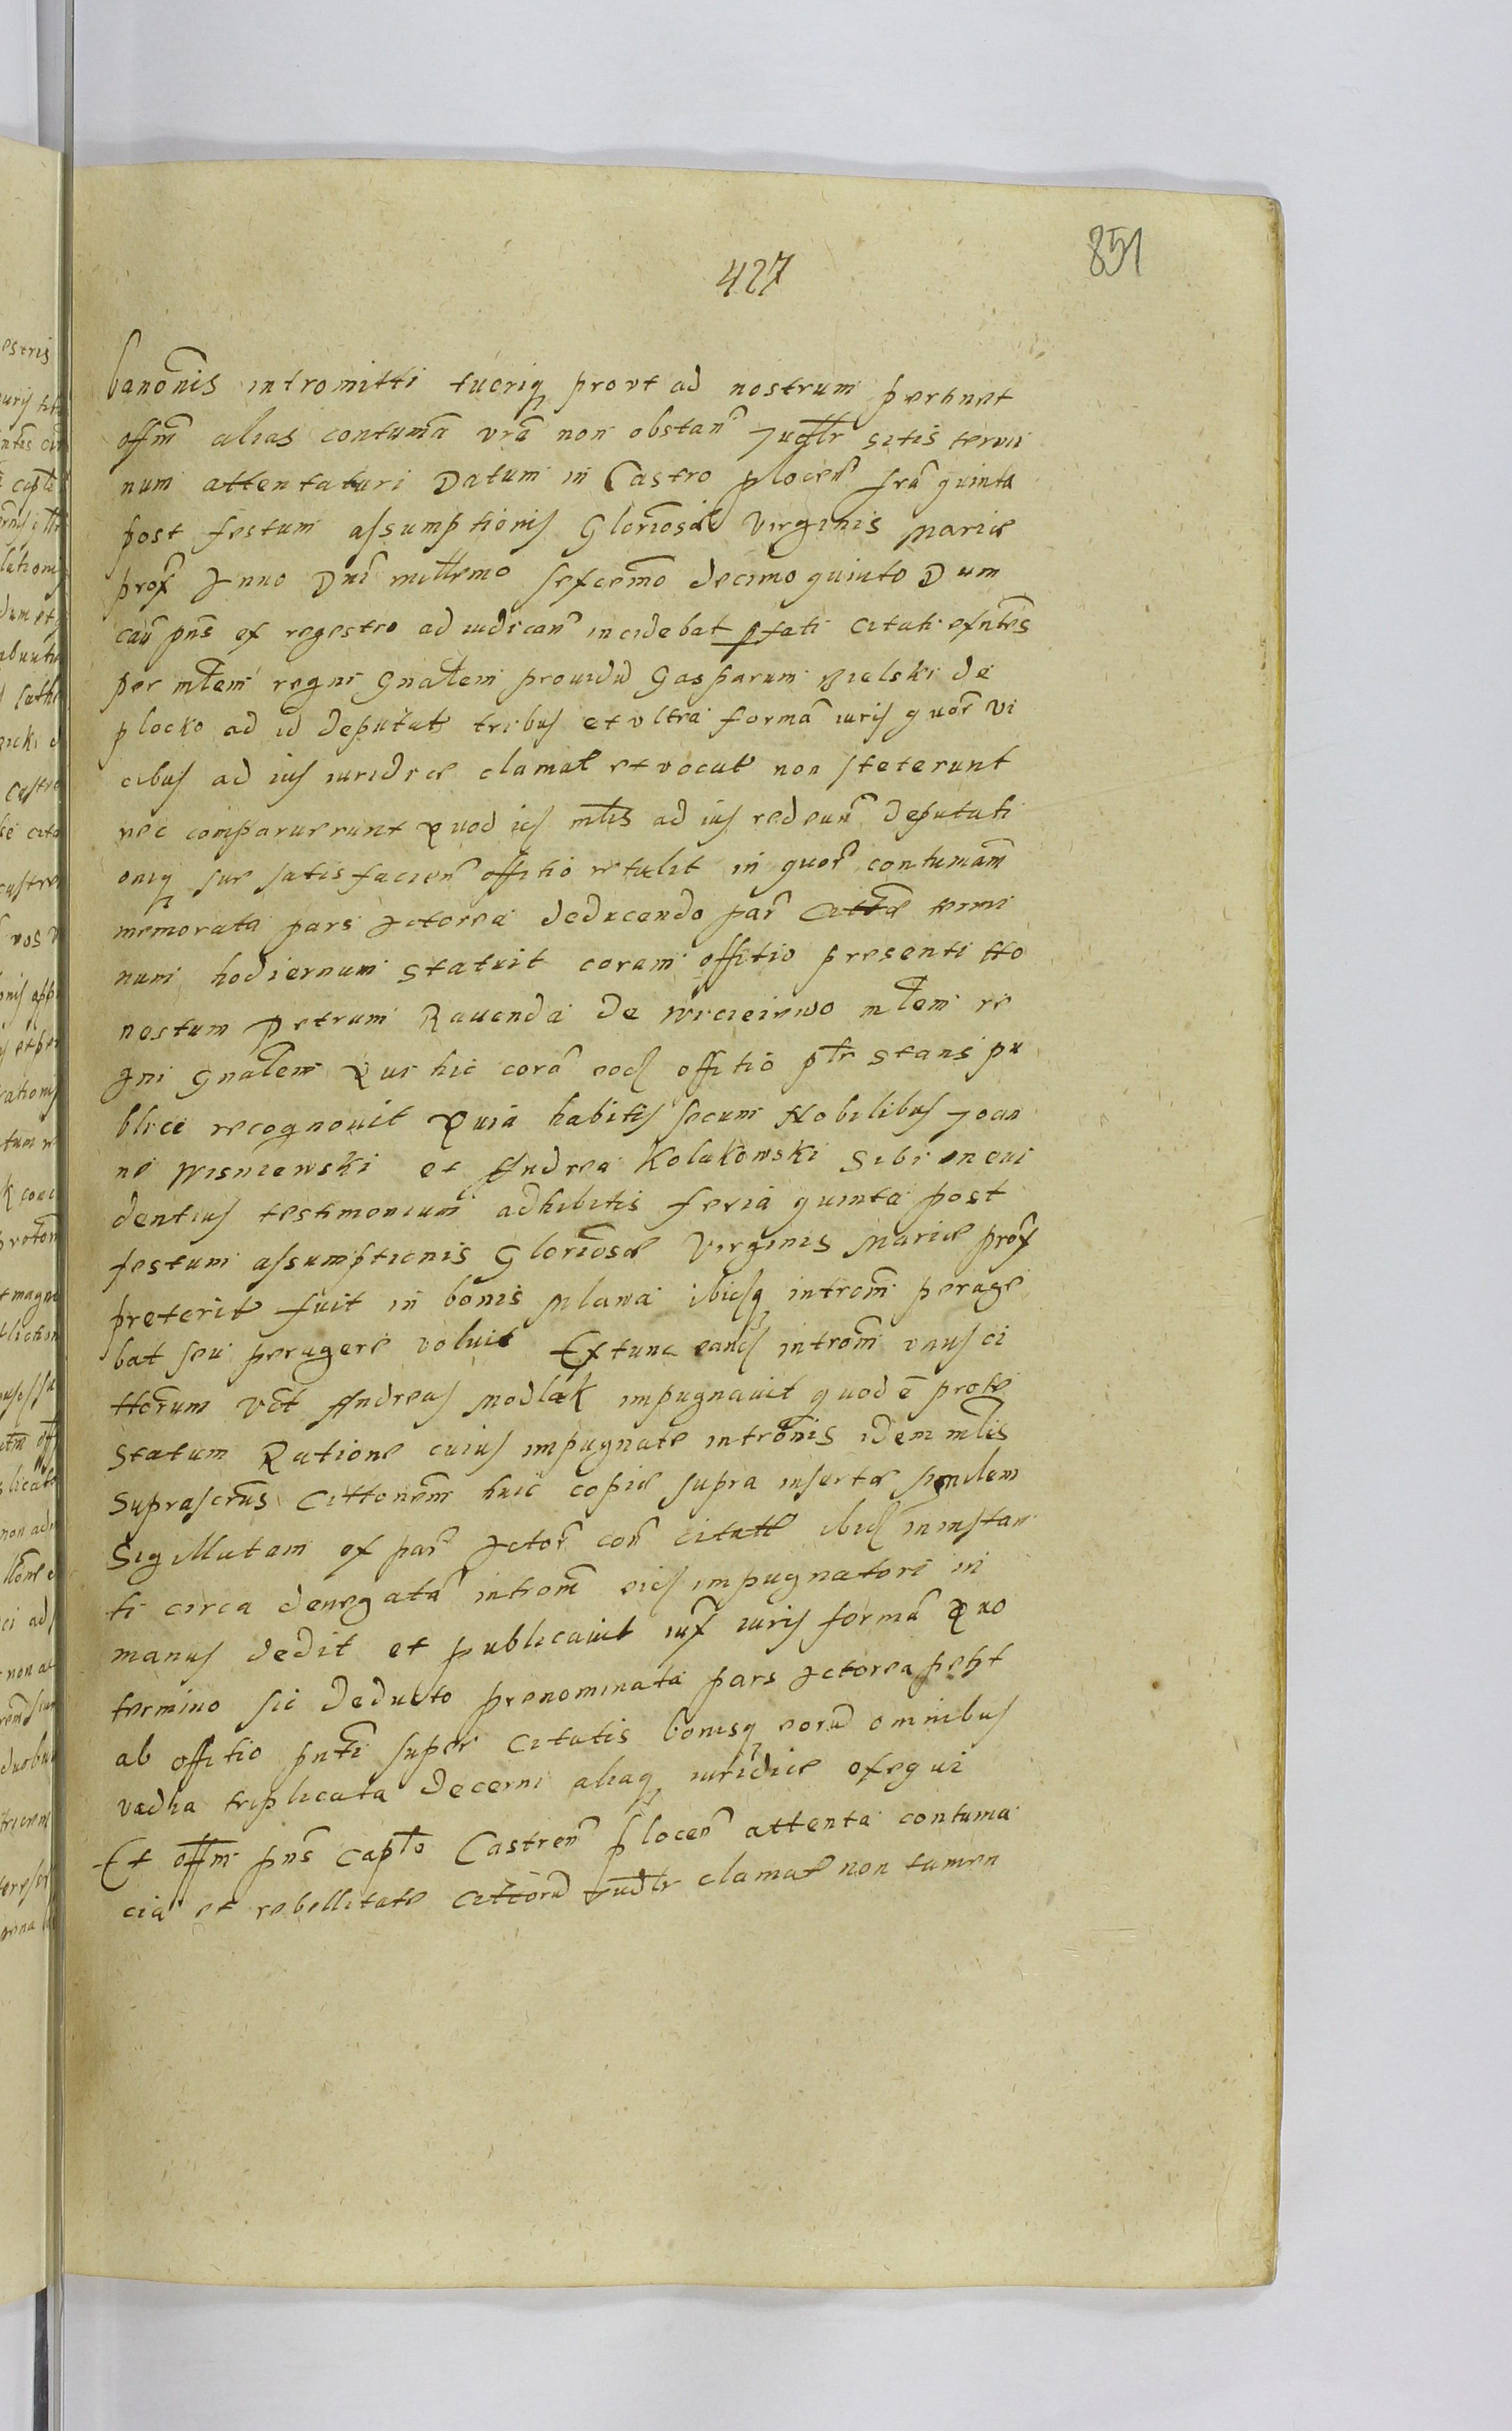 851
427
banonis intromitti tueriq prout ad nostrum pertinet
offm alias contumā vrā non obstan Judlr sitis termi
num attentaturi Datum in Castro plocen fra quinta
post festum assumptionis Gloriosae Virginis Mariae
prox Anno Dni millemo sexcemo decimo quinto Dum
caū pns ex regestro ad iudican incidebat pfati citati exntes
per mlem regni gnalem prouidū Gasparum Bielski de
plocko ad id deputat tribus et vltra formā iuris quor vi
cibus ad ius iuridice clamat et vocat non steterunt
nec comparuerunt Quod ids mlis ad ius redeun deputati
oniq sue satisfacien offitio retulit in quor contumām
memorata pars Actorea deducendo par Cittae termi
num hodiernum statuit coram offitio presenti Ho
nestum Petrum Rauenda de Wicieiewo mlem re
gni gnalem Qui hic corā eod offitio ptr stans pu
blice recognouit Quia habitis secum Nobilibus Joan
ne Wisniewski et Andrea Kolakowski sibi in eui
dentius testimonium adhibitis feria quinta post
festum assumptionis Gloriosae Virginis Mariae prox
preterit fuit in bonis Mlawa ibidq introm perage
bat seu peragere voluit Extunc eand introm vnus ci
ttorum vct Andreas Modlak impugnauit quod ē prote
statum Ratione cuius impugnate intronis idem mlis
suprascrus Cittonem huic copiae supra insertae similem
Sigillatam ex par Actor con citatt ibid in instan
ti circa denegatā introm eid impugnatori in
manus dedit et publicauit iux iuris formā Quo
termino sic deducto prenominata pars Actorea petyt
ab offitio pnti super citatis bonisq eorū omnibus
vadia triplicata decerni aliaq iuridice exequi
Et offm pns Capto Castren plocen attenta contuma
cia et rebellitate cittorū Judlr clamat non tamen